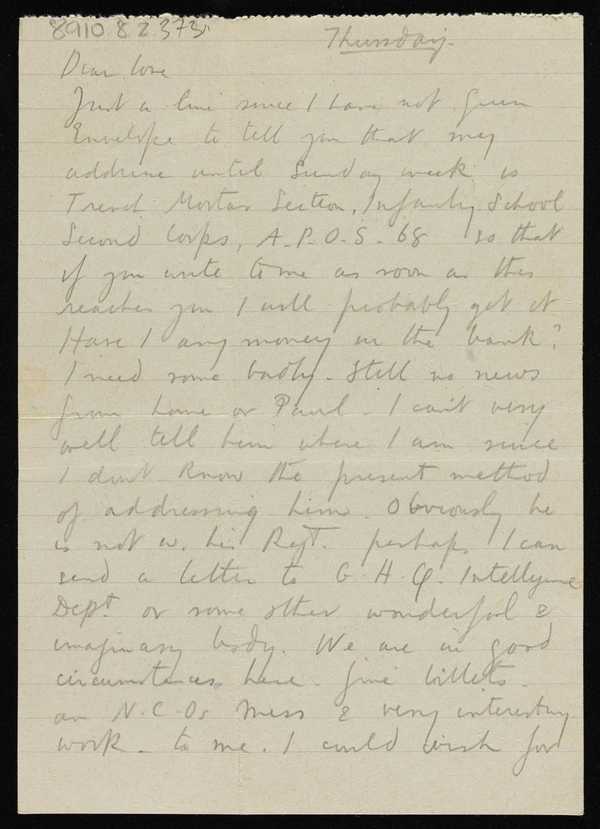 8910 82 373r
Thursday.
Dear love
Just a line since I have not Green
Envelope to tell you that my
address until Sunday week is
Trench Mortar Section, Infantry School
Second Corps, A.P.O.S. 68 so that
if you write to me as soon as this
reaches you I will probably get it
Have I any money in the bank?
I need some badly. Still no news
from home or Paul. I can't very
well tell him where I am since
I don't know the present method
of addressing him. Obviously he
is not w. his Regt. perhaps I can
send a letter to G.H.Q. Intelligence
Dept. or some other wonderful &
imaginary body. We are in good
circumstances here. fine billets.
an N.C.Os Mess & very interesting
work - to me. I could wish for